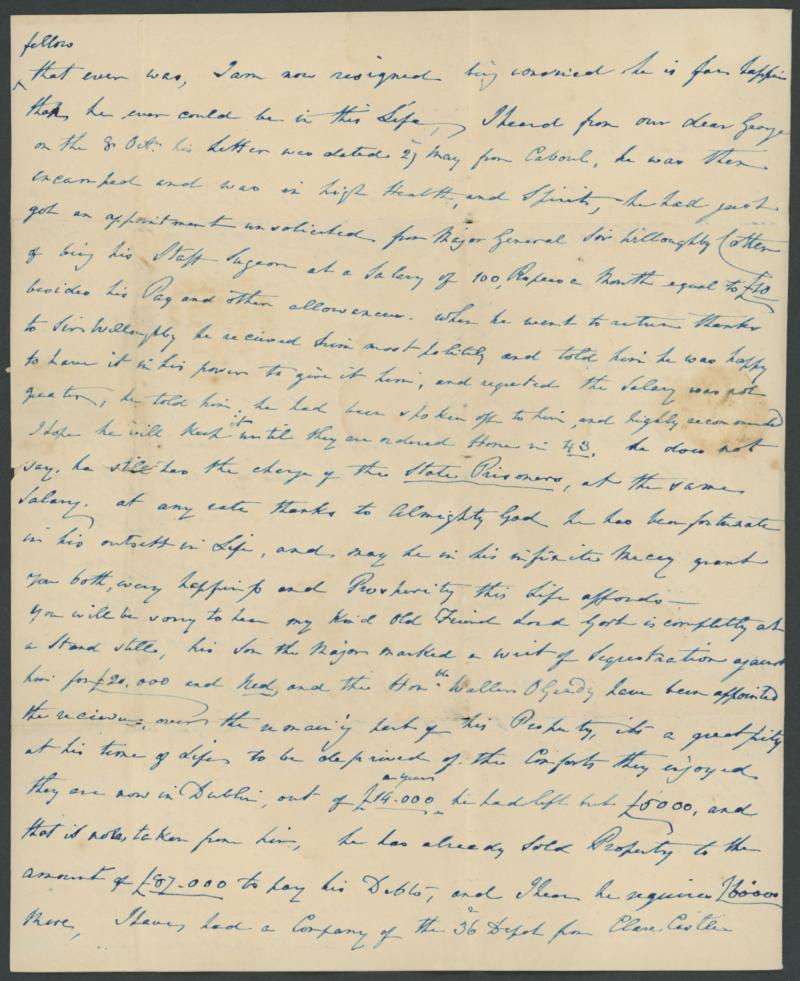 fellow
that ever was, I am now resigned being convinced he is far happier
than he ever could be in this Life, I heard from our dear George
on the 8 Octr. his Letter was dated 27 May from Caboul, he was then
encamped and was in high Health, and Spirits, he had just
got an appointment unsolicited from Major General Sir Willoughby Cotton
of being his Staff Sugeon at a Salary of 100, Rupees a Month equal to £10
besides his Pay and other allowances. When he went to return thanks
to Sir Willoughby he received him most politely and told him he was happy
to have it in his power to give it him, and regreted the Salary was not
greater, he told him, he had been spoken off to him, and highly recommended
I hope he will keep it until they are ordered Home in 43. he does not
say, he still has the charge of the State Prisoners, at the same
Salary. at any rate thanks to Almighty God he has been fortunate
in his outsett in Life, and may he in his infinite Mercy grant
you both, every happiness and Prosperity this Life affords—
You will be sorry to hear my Kind Old Friend Lord Gort is completly at
a Stand still, his Son the Major marked a writ of Sequestration against
him for £20,000 and Ned, and the Honble Wallers OGrady have been appointed
the recievers, over the remaing part of his Property, its a great pity
at his time of Life to be deprived of the Comforts they enjoyed
they are now in Dublin, out of £14.000 a year he had left but £5000, and
that is now taken from him, he has already Sold Property to the
amount of £87.000 to pay his Debts, and I hear he requires £60000
More, I have had a Company of the 36 Depot from Clare Castle